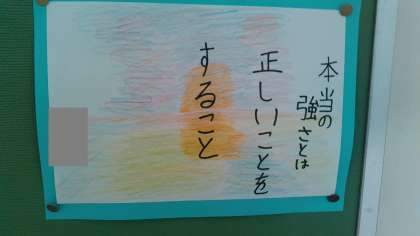 本当の
強さとは
正しいことを
すること